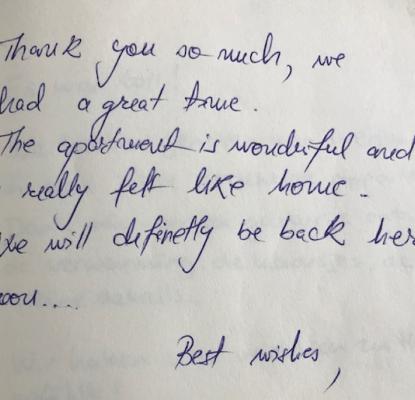 Thank you so much, we
had a great time.
The apartment is wonderful and
really felt like home.
we will definetly be back her
oon....
Best wishes,